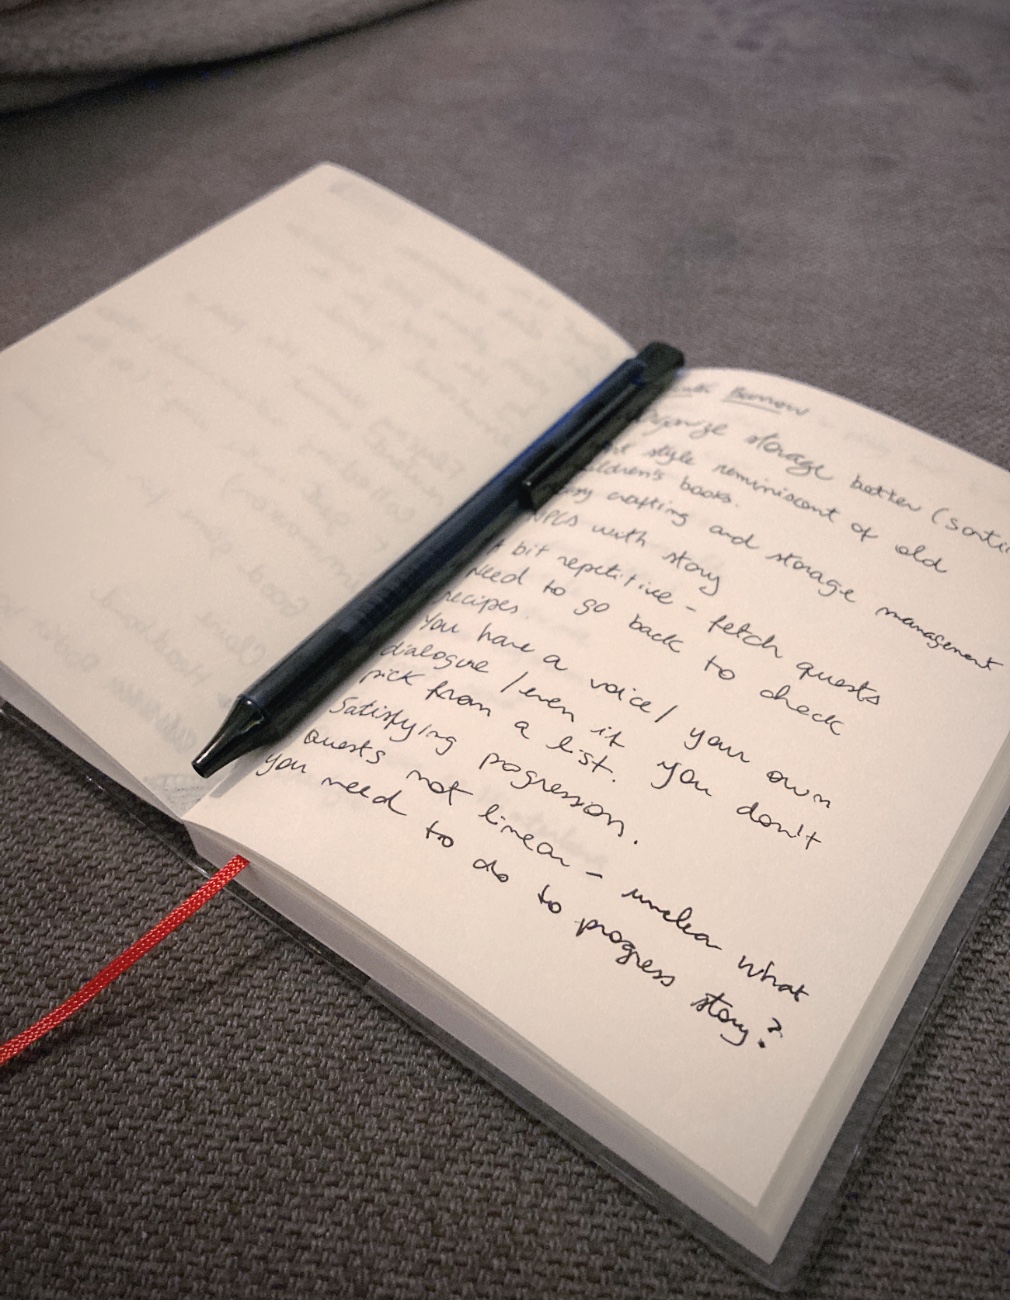 Burrow
Organize storage better (sortin
art style reminiscent of old
children's books.
Easy crafting and storage management
NPCs with story
A bit repetitive - fetch quests
Need to go back to check
recipes.
You have a voice/ your own
dialogue /even if you don't
pick from a list.
Satisfying progression.
Quests not linear - unclear what
you need to do to progress story?